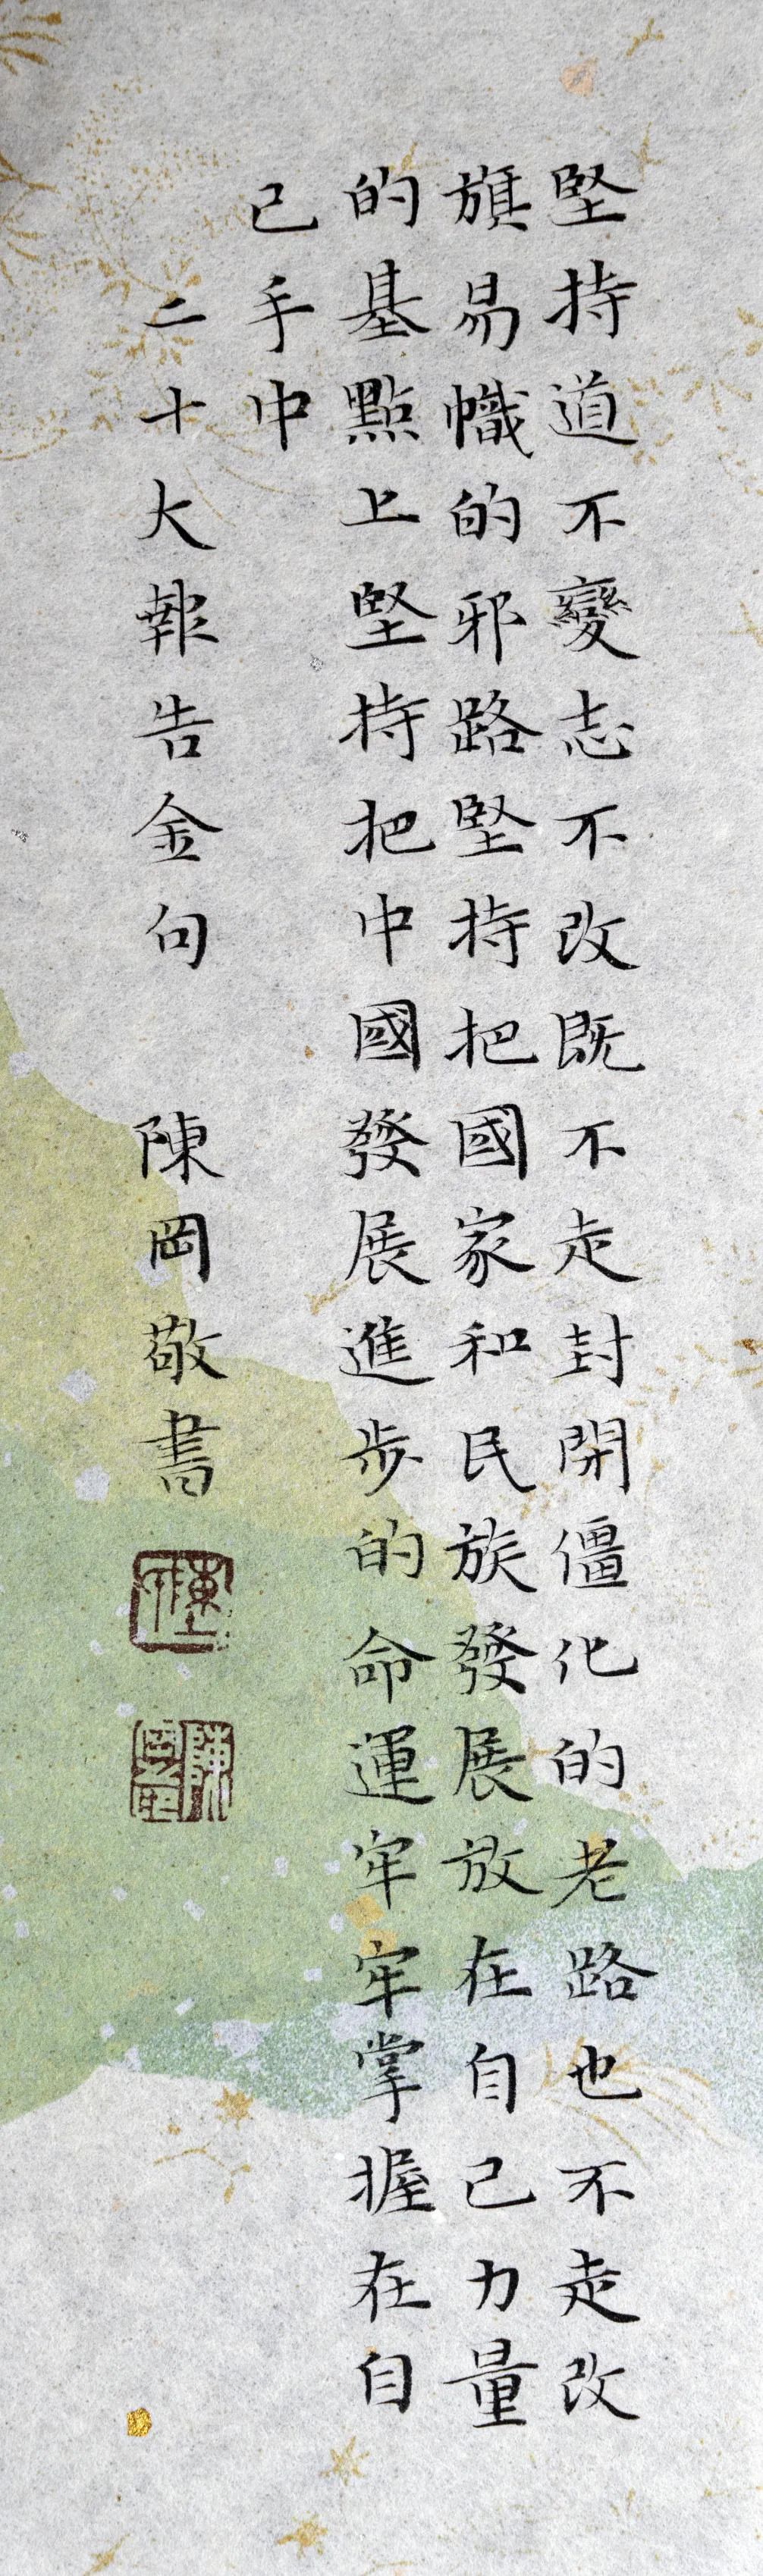 堅持道不變志不改既不走封閉僵化的老路也不走改
旗易幟的邪路堅持把國家和民族發展放在自己力量
的基點上堅持把中國發展進步的命運牢牢掌握在自
己手中
二十大報告金句 陳岡敬書